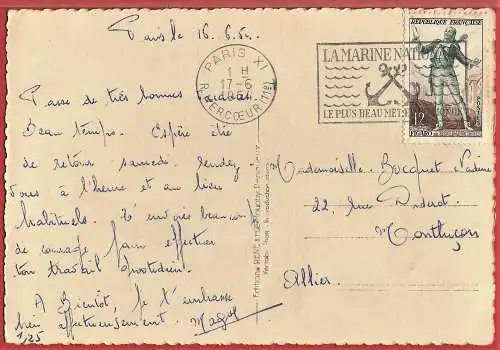 Paris le 16.6.54.
Passe de très bonnes
Beau temps. Espère être
de retour samedi. Rendez-
vous à l'heure et au lieu
habituels. T'envoies beaucoup
de courage pour effectuer
ton travail quotidien.
A Bientôt, je t'embrasse
bien affectueusement.
1,25
PARIS XI
1 H
17-6
R. MERCŒUR (11e)
LA MARINE NATIO
LE PLUS BEAU MÉT
RÉPUBLIQUE FRANÇAISE
12
Mademoiselle Bocquet Nadine
22, rue Diderot
Montluçon
Allier.